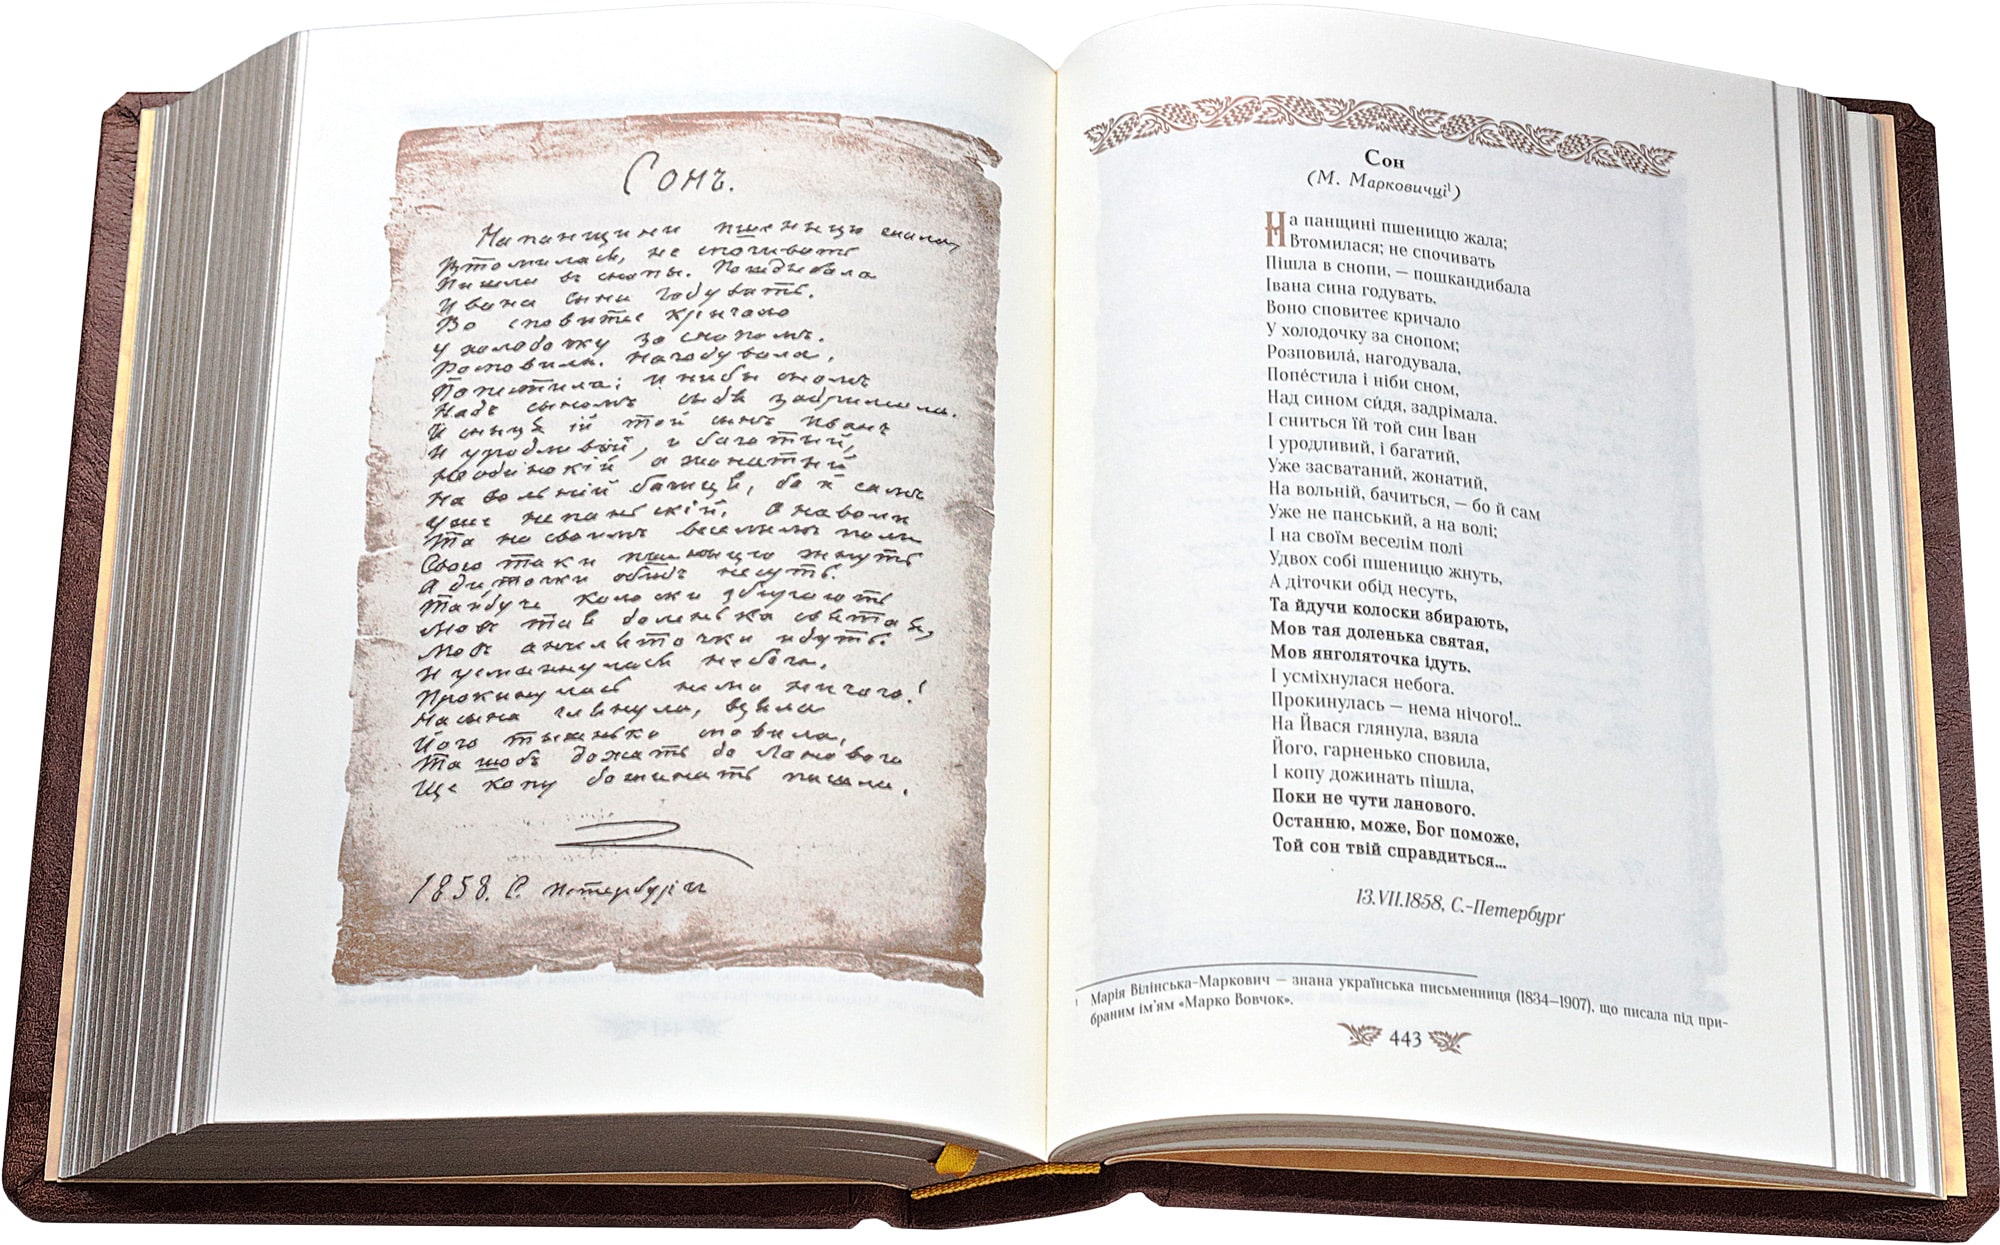 Сонъ.
На панщини пшеницю жала,
Втомилася, не спочивать
Пишла въ снопы. Пошкандыбала
Ивана сына годувать.
Во сповитее кричало
У холодочку за снопомъ.
Росповила. нагодувала,
Попестила; и ниби сномъ
Надъ сыномъ сыдя задримала.
И сныця ій той сынъ Иванъ
И уродливый, и богатый,
Не одинокій а жонатый
На вольній бачиця, бо й самъ
Уже непаньскій, а на воли
Та на своимъ веселимъ поли
Свою таки пшеницю жнуть
А диточки обидъ несуть.
Та йдучи колоски збирають
Мовъ тая доленька святая,
Мовъ ангеляточки идуть.
И усмихнулася небога.
Прокинулась нема ничого!
На сына глянула, взяла
Його тыхенько сповила,
Та щобъ дожать до ланового
Ще копу дожинать пишла.
1858. С. Петербургъ
Сон
(М. Марковичці¹)
На панщині пшеницю жала;
Втомилася; не спочивать
Пішла в снопи, – пошкандибала
Івана сина годувать.
Воно сповитеє кричало
У холодочку за снопом;
Розповила́, нагодувала,
Попе́стила і ніби сном,
Над сином си́дя, задрімала.
І сниться їй той син Іван
І уродливий, і багатий,
Уже засватаний, жонатий,
На вольній, бачиться, – бо й сам
Уже не панський, а на волі;
І на своїм веселім полі
Удвох собі пшеницю жнуть,
А діточки обід несуть,
Та йдучи колоски збирають,
Мов тая доленька святая,
Мов янголяточка ідуть.
І усміхнулася небога.
Прокинулась – нема нічого!..
На Йвася глянула, взяла
Його, гарненько сповила,
І копу дожинать пішла,
Поки не чути ланового.
Останню, може, Бог поможе,
Той сон твій справдиться...
13.VII.1858, С.-Петербурґ
¹ Марія Вілінська-Маркович – знана українська письменниця (1834–1907), що писала під при-
браним ім'ям «Марко Вовчок».
443